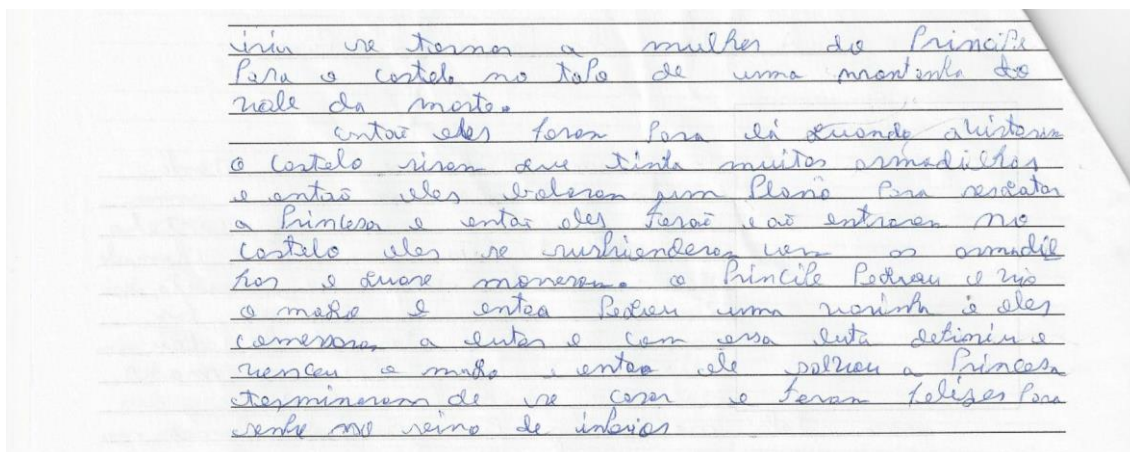 iria se tornar a mulher do Principe
Para o castelo no topo de uma montanha do
vale da morte.
então eles foram Para lá quando avistaram
o castelo viram que tinha muitas armadilhas
e então eles bolaram um Plano Para resgatar
a Princesa e então eles forão e ao entrarem no
castelo eles se surprienderam com as armadil
has e quase morreram. o Principe Pedreu e viu
o mago e então Pegou uma varinha e eles
comessaram a lutar e com essa luta
venceu o mago e então ele salvou a Princesa
terminaram de se casar e foram felizes Para
senpre no reino de